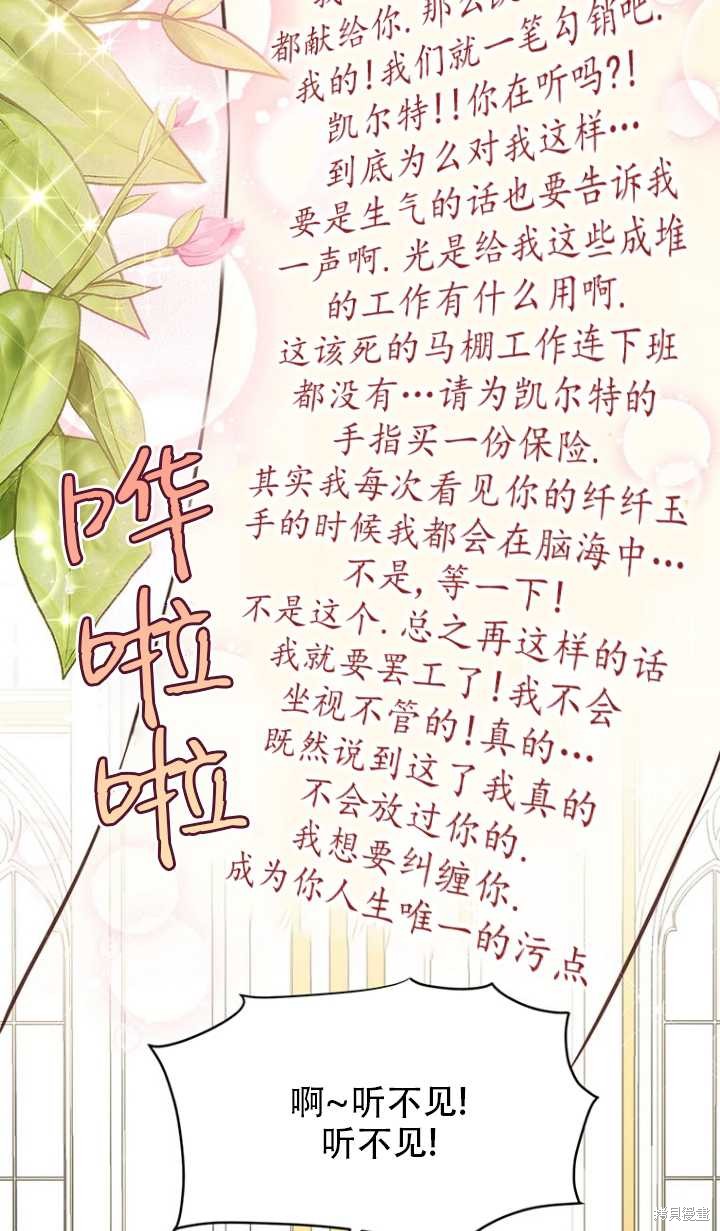 都献给你.那么
我的!我们就一笔勾销吧.
凯尔特!!你在听吗?!
到底为么对我这样…
要是生气的话也要告诉我
一声啊.光是给我这些成堆
的工作有什么用啊.
这该死的马棚工作连下班
都没有…请为凯尔特的
手指买一份保险.
其实我每次看见你的纤纤玉
手的时候我都会在脑海中…
不是,等一下!
不是这个.总之再这样的话
我就要罢工了!我不会
坐视不管的!真的…
既然说到这了我真的
不会放过你的.
我想要纠缠你.
成为你人生唯一的污点
哗
啦
啦
啊~听不见!
听不见!
拷貝漫畫